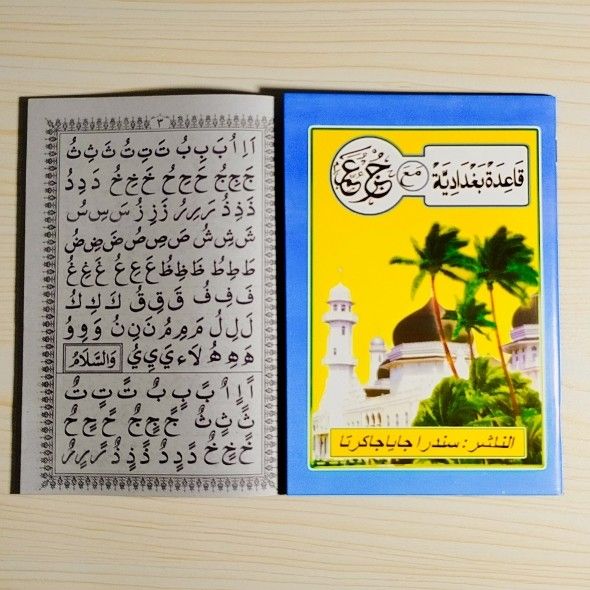 ٣
اَ اِ اُ بَ بِ بُ تَ تِ تُ ثَ ثِ ثُ
جَ جِ جُ حَ حِ حُ خَ خِ خُ دَ دِ دُ
ذَ ذِ ذُ رَ رِ رُ زَ زِ زُ سَ سِ سُ
شَ شِ شُ صَ صِ صُ ضَ ضِ ضُ
طَ طِ طُ ظَ ظِ ظُ عَ عِ عُ غَ غِ غُ
فَ فِ فُ قَ قِ قُ كَ كِ كُ
لَ لِ لُ مَ مِ مُ نَ نِ نُ وَ وِ وُ
هَ هِ هُ لَا ءَ يَ يِ يُ وَالسَّلَامُ
اً اٍ اٌ بً بٍ بٌ تً تٍ تٌ
ثً ثٍ ثٌ جً جٍ جٌ حً حٍ حٌ
خً خٍ خٌ دً دٍ دٌ ذً ذٍ ذٌ رً رٍ رٌ
قَاعِدَةْ بَغْدَادِيَّةْ مع جُزْ عَمَّ
الناشر : سندرا جايا جاكرتا